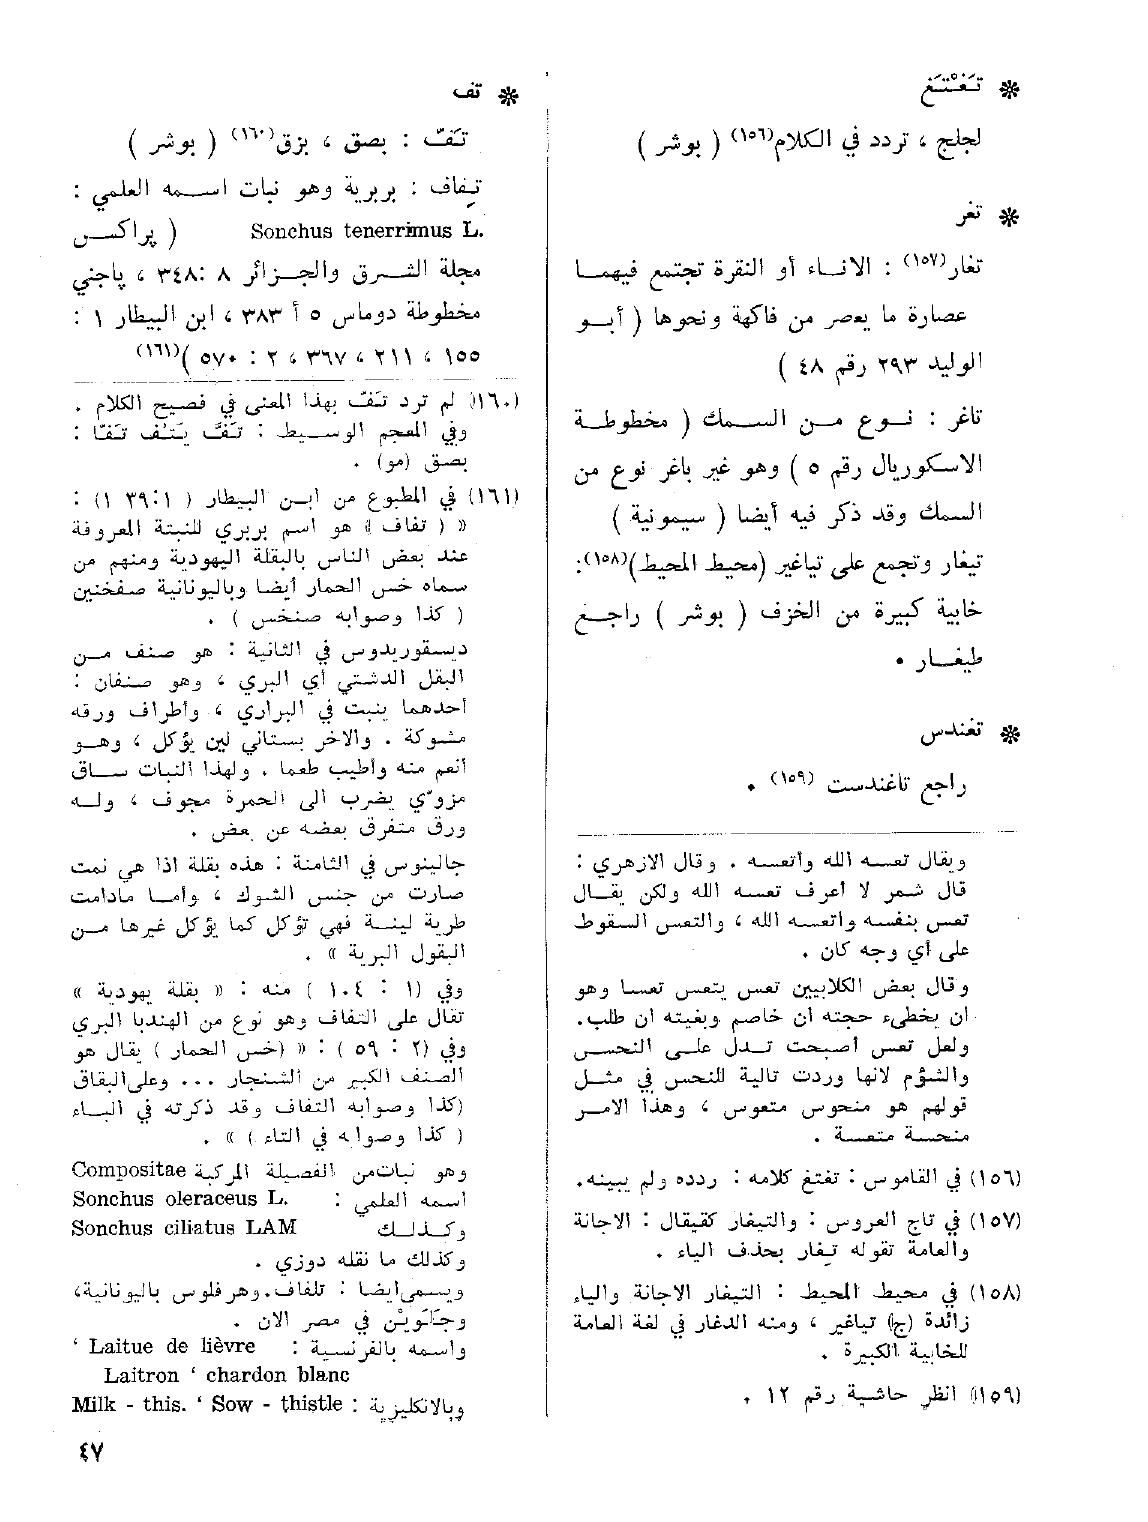 * تَغَتَغَ
لجلج ، تردد في الكلام(١٥٦) ( بوشر )
* تغر
تغار(١٥٧) : الاناء أو النقرة تجتمع فيهما
عصارة ما يعصر من فاكهة ونحوها ( أبو
الوليد ٢٩٣ رقم ٤٨ )
تاغر : نوع من السمك ( مخطوطة
الاسكوريال رقم ٥ ) وهو غير باغر نوع من
السمك وقد ذكر فيه أيضا ( سيمونية )
تيغار وتجمع على تياغير (محيط المحيط)(١٥٨):
خابية كبيرة من الخزف ( بوشر ) راجع
طيغار .
* تغندس
راجع تاغندست (١٥٩) .
ويقال تعسه الله وأتعسه . وقال الازهري :
قال شمر لا أعرف تعسه الله ولكن يقال
تعس بنفسه واتعسه الله ، والتعس السقوط
على أي وجه كان .
وقال بعض الكلابيين تعس يتعس تعسا وهو
ان يخطىء حجته ان خاصم وبغيته ان طلب.
ولعل تعس أصبحت تدل على النحس
والشؤم لانها وردت تالية للنحس في مثل
قولهم هو منحوس متعوس ، وهذا الامر
منحسة متعسة .
(١٥٦) في القاموس : تغتغ كلامه : ردده ولم يبينه.
(١٥٧) في تاج العروس : والتيغار كقيقال : الاجانة
والعامة تقوله تيغار بحذف الياء .
(١٥٨) في محيط المحيط : التيغار الاجانة والياء
زائدة (ج) تياغير ، ومنه الدغار في لغة العامة
للخابية الكبيرة .
(١٥٩) انظر حاشية رقم ١٢ .
* تف
تَفّ : بصق ، بزق(١٦٠) ( بوشر )
تِفاف : بربرية وهو نبات اسمه العلمي :
Sonchus tenerrimus L. ( پراكس
مجلة الشرق والجزائر ٨ :٣٤٨ ، پاجني
مخطوطة دوماس ٥ أ ٣٨٣ ، ابن البيطار ١ :
١٥٥ ، ٢١١ ، ٣٦٧ ، ٢ : ٥٧٠ )(١٦١)
(١٦٠) لم ترد تَفّ بهذا المعنى في فصيح الكلام .
وفي المعجم الوسيط : تَفّ يَتُف تَفّا :
بصق (مو) .
(١٦١) في المطبوع من ابن البيطار ( ١ :١٣٩) :
« ( تفاف )» هو اسم بربري للنبتة المعروفة
عند بعض الناس بالبقلة اليهودية ومنهم من
سماه خس الحمار أيضا وباليونانية صفخنين
( كذا وصوابه صنخس ) .
ديسقوريدوس في الثانية : هو صنف من
البقل الدشتي أي البري ، وهو صنفان :
أحدهما ينبت في البراري ، وأطراف ورقه
مشوكة . والاخر بستاني لين يؤكل ، وهو
أنعم منه وأطيب طعما . ولهذا النبات ساق
مزوّي يضرب الى الحمرة مجوف ، وله
ورق متفرق بعضه عن بعض .
جالينوس في الثامنة : هذه بقلة اذا هي نمت
صارت من جنس الشوك ، وأما مادامت
طرية لينة فهي تؤكل كما يؤكل غيرها من
البقول البرية » .
وفي (١ : ١٠٤ ) منه : « بقلة يهودية »
تقال على التفاف وهو نوع من الهندبا البري
وفي (٢ : ٥٩ ) : « (خس الحمار ) يقال هو
الصنف الكبير من الشنجار ... وعلى البقاق
(كذا وصوابه التفاف وقد ذكرته في الباء
( كذا وصوابه في التاء ) » .
وهو نبات من الفصيلة المركبة Compositae
اسمه العلمي : Sonchus oleraceus L.
وكذلك Sonchus ciliatus LAM
وكذلك ما نقله دوزي .
ويسمى ايضا : تلفاف. وهرفلوس باليونانية،
وجَلَوِيْن في مصر الان .
واسمه بالفرنسية : Laitue de lièvre ‘
Laitron ‘ chardon blanc
وبالانكليزية : Milk - this. ‘ Sow - thistle
٤٧